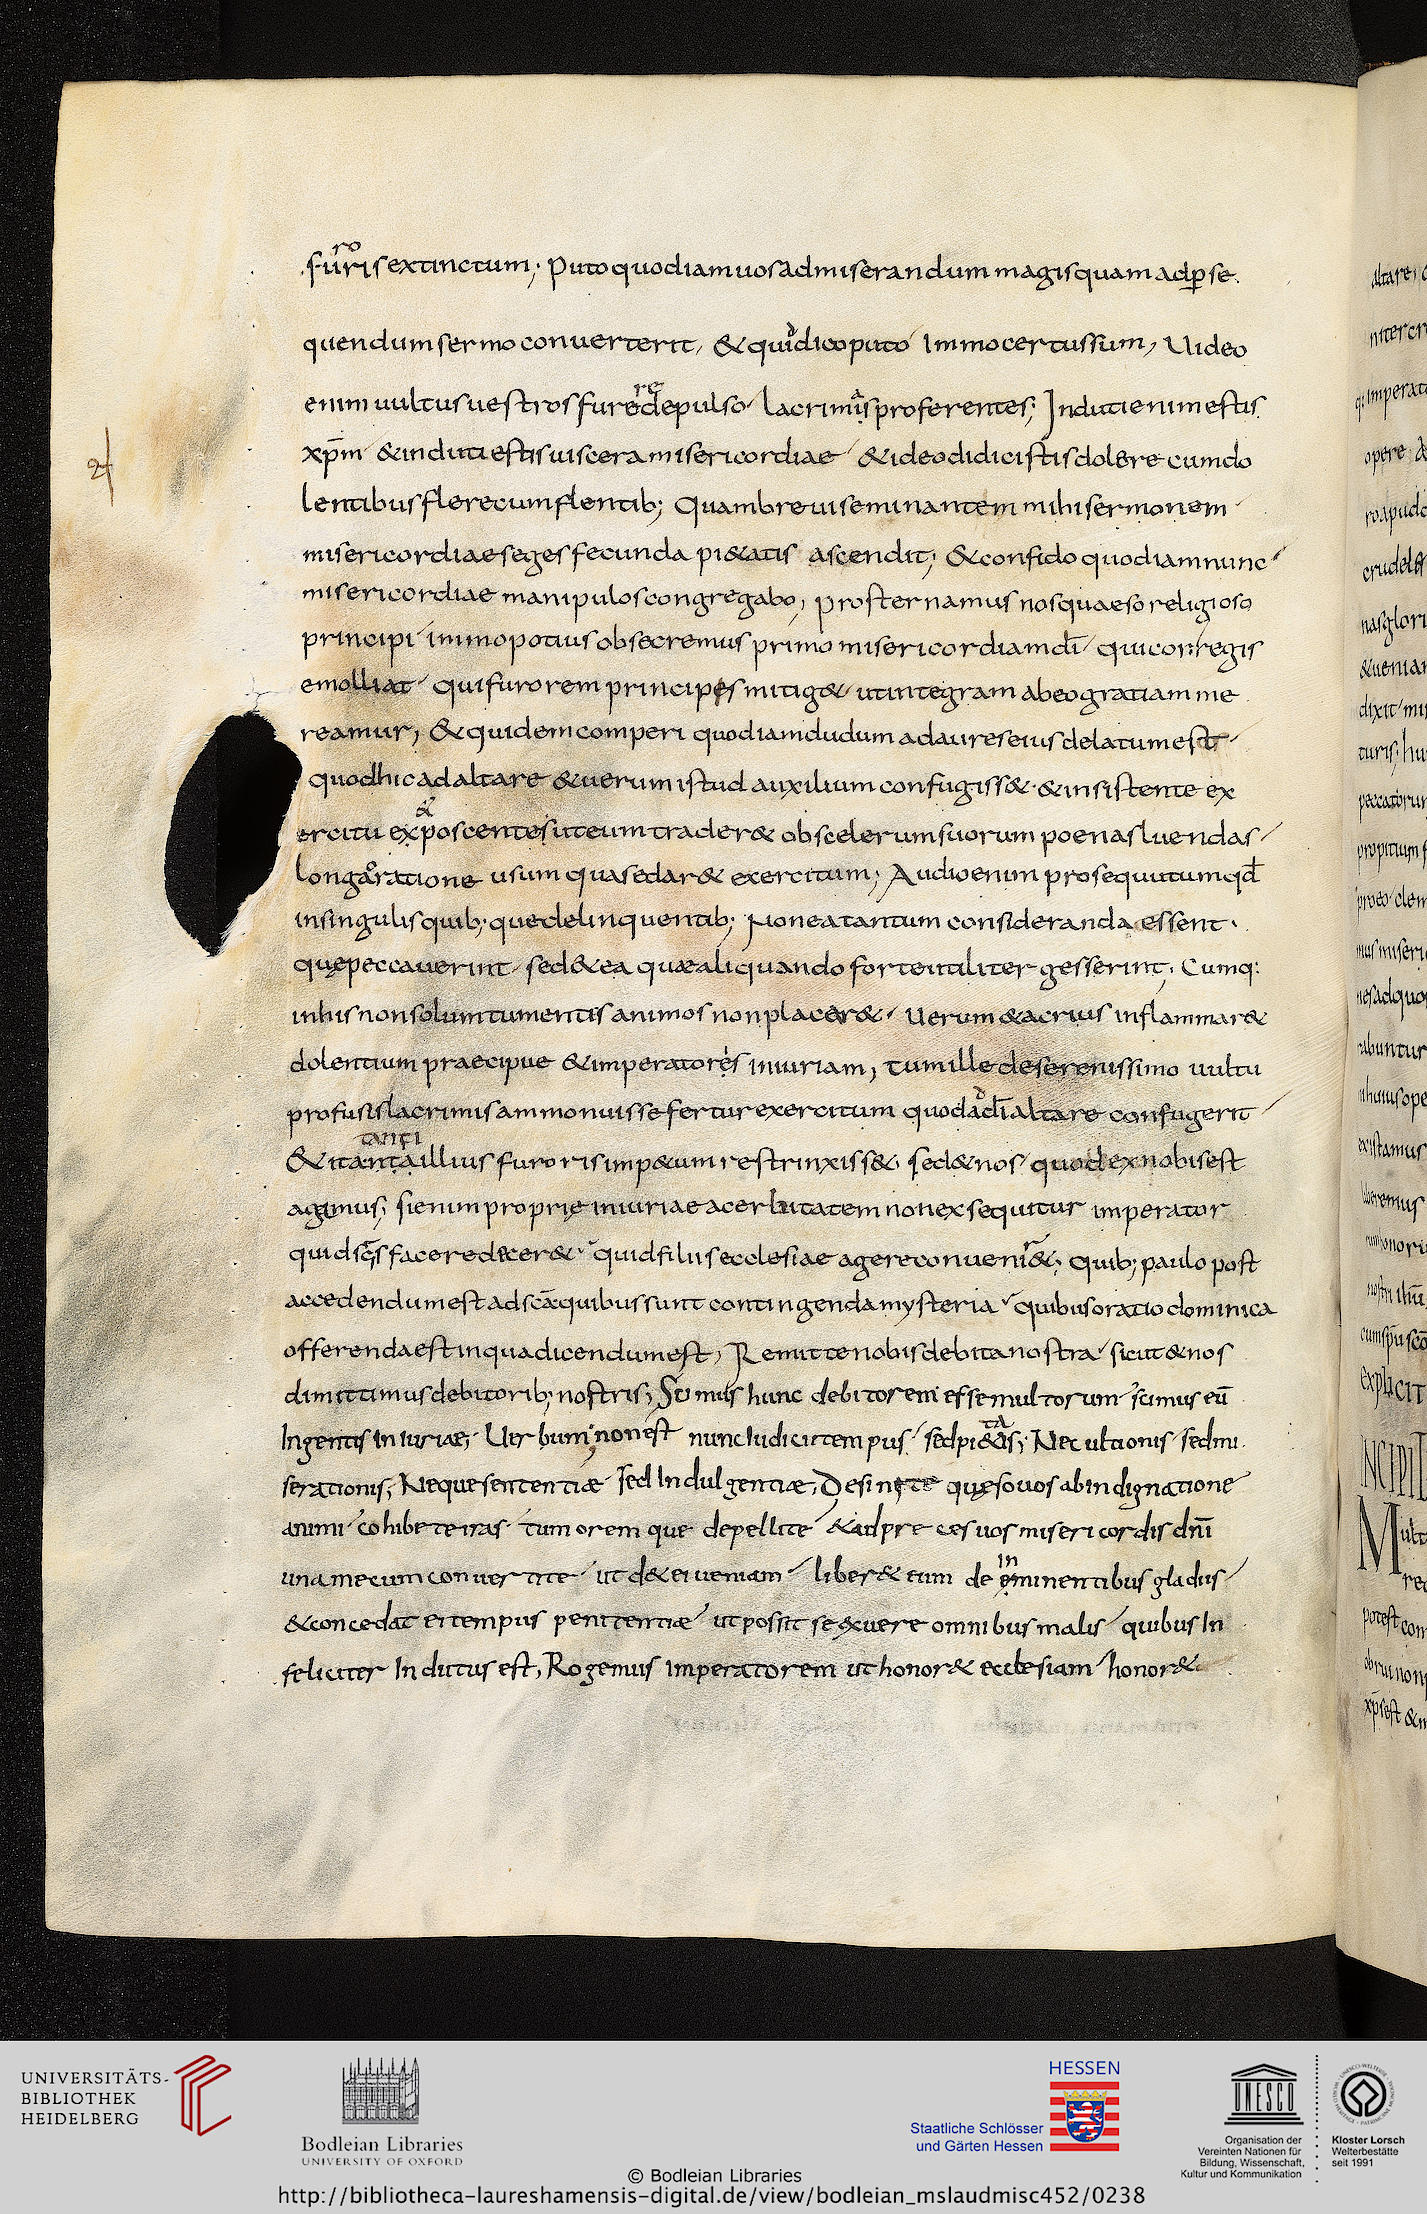 furoris extinctum; Puto quod iam uos ad miserandum magis quam ad p̲se
quendum sermo conuerterit, & quid dico puto immo certus sum, Uideo
enim uultus uestros furore depulso lacrimas proferentes; Induti enim estis
xp̄m & induti estis uiscera misericordiae & ideo didicistis dolere cum do
lentibus flere cum flentib; Quam breui seminantem mihi sermonem
misericordiae seges fecunda pi&atis ascendit; & confido quod iam nunc
misericordiae manipulos congregabo, prosternamus nos quaeso religioso
principi immo potius obsecremus primo misericordiam dī qui cor regis
emolliat qui furorem principis mitig& ut integram ab eo gratiam me
reamur, & quidem comperi quod iam dudum ad aures eius delatum est
quod hic ad altare & uerum istud auxilium confugiss& & insistente ex
ercitu & exposcente ut eum trader& ob scelerum suorum poenas luendas
longa oratione usum qua sedar& exercitum; Audio enim prosequutum qđ
in singulis quib; que delinquentib; Non ea tantum consideranda essent
quę peccauerint sed & ea quæ aliquando forte utiliter gesserint, Cumq:
in his non solum tumentis animos non placar& Uerum & acrius inflammar&
dolentium praecipue & imperatoris iniuriam, tum ille de serenissimo uultu
profusis lacrimis ammonuisse fertur exercitum quod ad dī altare confugerit
& ita tanti illius furoris imp&um restrinxiss& sed & nos quod ex nobis est
agamus; si enim proprię iniuriae acerbitatem non exsequitur imperator
quid sc̄s facere decer& quid filiis ecclesiae agere conueni&; Quib; paulo post
accedendum est ad sc̄a quibus sunt contingenda mysteria quibus oratio dominica
offerenda est in qua dicendum est, Remitte nobis debita nostra sicut & nos
dimittimus debitorib; nostris; Scimus hunc debitorem esse multorum scimus eū
Ingentis Iniuriae; Uerbum non est nunc Iudicii tempus sed pi&atis; Nec ultionis sed mi
serationis; Neque sententiæ sed Indulgentiæ, Desinite quęso uos ab indignatione
animi cohibete iras tumorem que depellite & ad prеces uos misericordis dn̄i
una mecum conuertite ut d& ei ueniam liber& eum de inminentibus gladiis
& concedat ei tempus penitentiæ ut possit se exuere omnibus malis quibus In
feliciter Indutus est, Rogemus Imperatorem ut honor& ecclesiam honor&
UNIVERSITÄTS-
BIBLIOTHEK
HEIDELBERG
Bodleian Libraries
UNIVERSITY OF OXFORD
HESSEN
Staatliche Schlösser
und Gärten Hessen
UNESCO
Organisation der
Vereinten Nationen für
Bildung, Wissenschaft,
Kultur und Kommunikation
Kloster Lorsch
Welterbestätte
seit 1991
© Bodleian Libraries
http://bibliotheca-laureshamensis-digital.de/view/bodleian_mslaudmisc452/0238